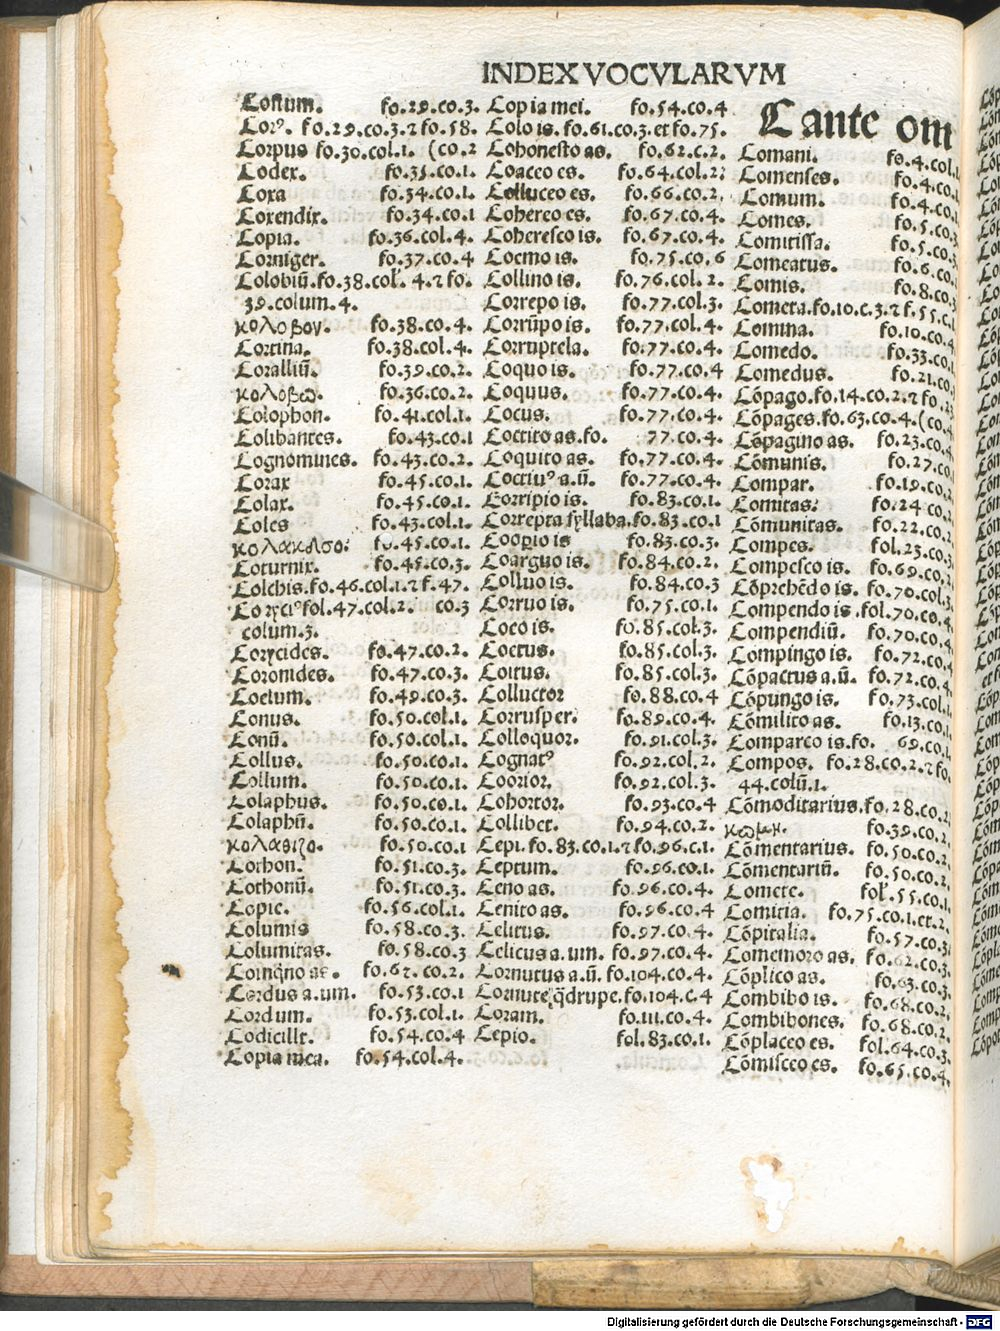 INDEX VOCVLARVM
Costum. fo.29.co.3.
Corꝰ. fo.29.co.3.⁊ fo.58.
Corpus fo.30.col.1. (co.2
Codex. fo.35.co.1.
Coxa fo.34.co.1.
Coxendix. fo.34.co.1
Copia. fo.36.col.4.
Corniger. fo.37.co.4
Colobiū.fo.38.col. 4.⁊ fo.
39.colum.4.
κολοβον. fo.38.co.4.
Cortina. fo.38.col.4.
Coralliū. fo.39.co.2.
κολοβεω. fo.36.co.2.
Colophon. fo.41.col.1.
Colibantes. fo.43.co.1
Cognomines. fo.43.co.2.
Corax fo.45.co.1.
Colax. fo.45.co.1.
Coles fo.43.col.1.
fo.45.co.1.
Coturnix. fo.45.co.3.
Colchis.fo.46.col.1.⁊ f.47.
Coryciꝰfol.47.col.2. co.3
colum.3.
Corycides. fo.47.co.2.
Coronides. fo.47.co.3.
Coelum. fo.49.co.3.
Conus. fo.50.col.1.
Conū. fo.50.col.1.
Collus. fo.50.co.1.
Collum. fo.50.co.1.
Colaphus. fo.50.co.1.
Colaphū. fo.50.co.1.
fo.50.co.1
Cothon. fo.51.co.3.
Cothonū. fo.51.co.3.
Copie. fo.56.col.1.
Columis fo.58.co.3.
Columitas. fo.58.co.3
Coinq̄no as. fo.62.co.2.
Cordus a.um. fo.53.co.1
Cordum. fo.53.col.1.
Codicille. fo.54.co.4
Copia mea. fo.54.col.4.
Copia mei. fo.54.co.4
Colo is. fo.61.co.3.et fo.75.
Cohonesto as. fo.62.c.2.
Coaceo es. fo.64.col.2;
Colluceo es. fo.66.co.2.
Cohereo es. fo.67.co.4.
Coheresco is. fo.67.co.4.
Coemo is. fo.75.co.6
Collino is. fo.76.col.2.
Correpo is. fo.77.col.3.
Corrūpo is. fo.77.col.4.
Corruptela. fo.77.co.4.
Coquo is. fo.77.co.4
Coquus. fo.77.co.4.
Cocus. fo.77.co.4.
Coctito as.fo. 77.co.4.
Coquito as. fo.77.co.4.
Coctiuꝰ a.ū. fo.77.co.4.
Corripio is. fo.83.co.1.
Correpta syllaba.fo.83.co.1
Coopio is fo.83.co.3.
Coarguo is. fo.84.co.2.
Colluo is. fo.84.co.3
Corruo is. fo.75.co.1.
Coeo is. fo.85.col.3.
Coetus. fo.85.col.3.
Coitus. fo.85.col.3.
Colluctor fo.88.co.4
Corrusper. fo.89.co.4.
Colloquor. fo.91.col.3.
Cognatꝰ fo.92.col.2.
Coorior. fo.92.col.3.
Cohortor. fo.93.co.4
Collibet. fo.94.co.2.
Cepi. fo.83.co.1.⁊ fo.96.c.1.
Ceptum. fo.96.co.1.
Ceno as. fo.96.co.4.
Cenito as. fo.96.co.4
Celitus. fo.97.co.4.
Celicus a.um. fo.97.co.4.
Cornutus a.ū. fo.104.co.4.
Cornute q̄drupe.fo.104.c.4
Coram. fo.111.co.4.
Cepio. fol.83.co.1.
C ante om
Comani. fo.4.col.
Comenses. fo.4.co.
Comum. fo.4.co.
Comes. fo.5.co.
Comitissa. fo.5.co.
Comeatus. fo.6.co.
Comis. fo.8.co.
Cometa.fo.10.c.3.⁊ f.55.c.
Comina. fo.10.co.
Comedo. fo.33.co.
Comedus. fo.21.co.
Cōpago.fo.14.co.2.⁊ fo.
Cōpages.fo.63.co.4.(co.
Cōpagino as. fo.23.co.
Cōmunis. fo.27.co.
Compar. fo.19.co.
Comitas. fo.24.co.
Cōmunitas. fo.22.co.
Compes. fol.23.co.
Compesco is. fo.69.co.
Cōprehēdo is. fo.70.col.
Compendo is .fol.70.co.
Compendiū. fo.70.co.
Compingo is. fo.72.co.
Cōpactus a.ū. fo.72.co.
Cōpungo is. fo.73.col.
Cōmilito as. fo.13.co.
Comparco is.fo. 69.co.
Compos. fo.28.co.2.⁊ fo.
44.colū.1.
Cōmoditarius.fo.28.co.
fo.39.co.
Cōmentarius. fo.50.co.
Cōmentariū. fo.50.co.
Comete. fol.55.co.
Comitia. fo.75.co.1.et.2.
Cōpitalia. fo.57.co.
Comemoro as. fo.62.co.
Cōplico as. fo.63.co.
Combibo is. fo.68.co.
Combibones. fo.68.co.
Cōplaceo es. fol.64.co.
Cōmisceo es. fo.65.co.
Digitalisierung gefördert durch die Deutsche Forschungsgemeinschaft - DFG